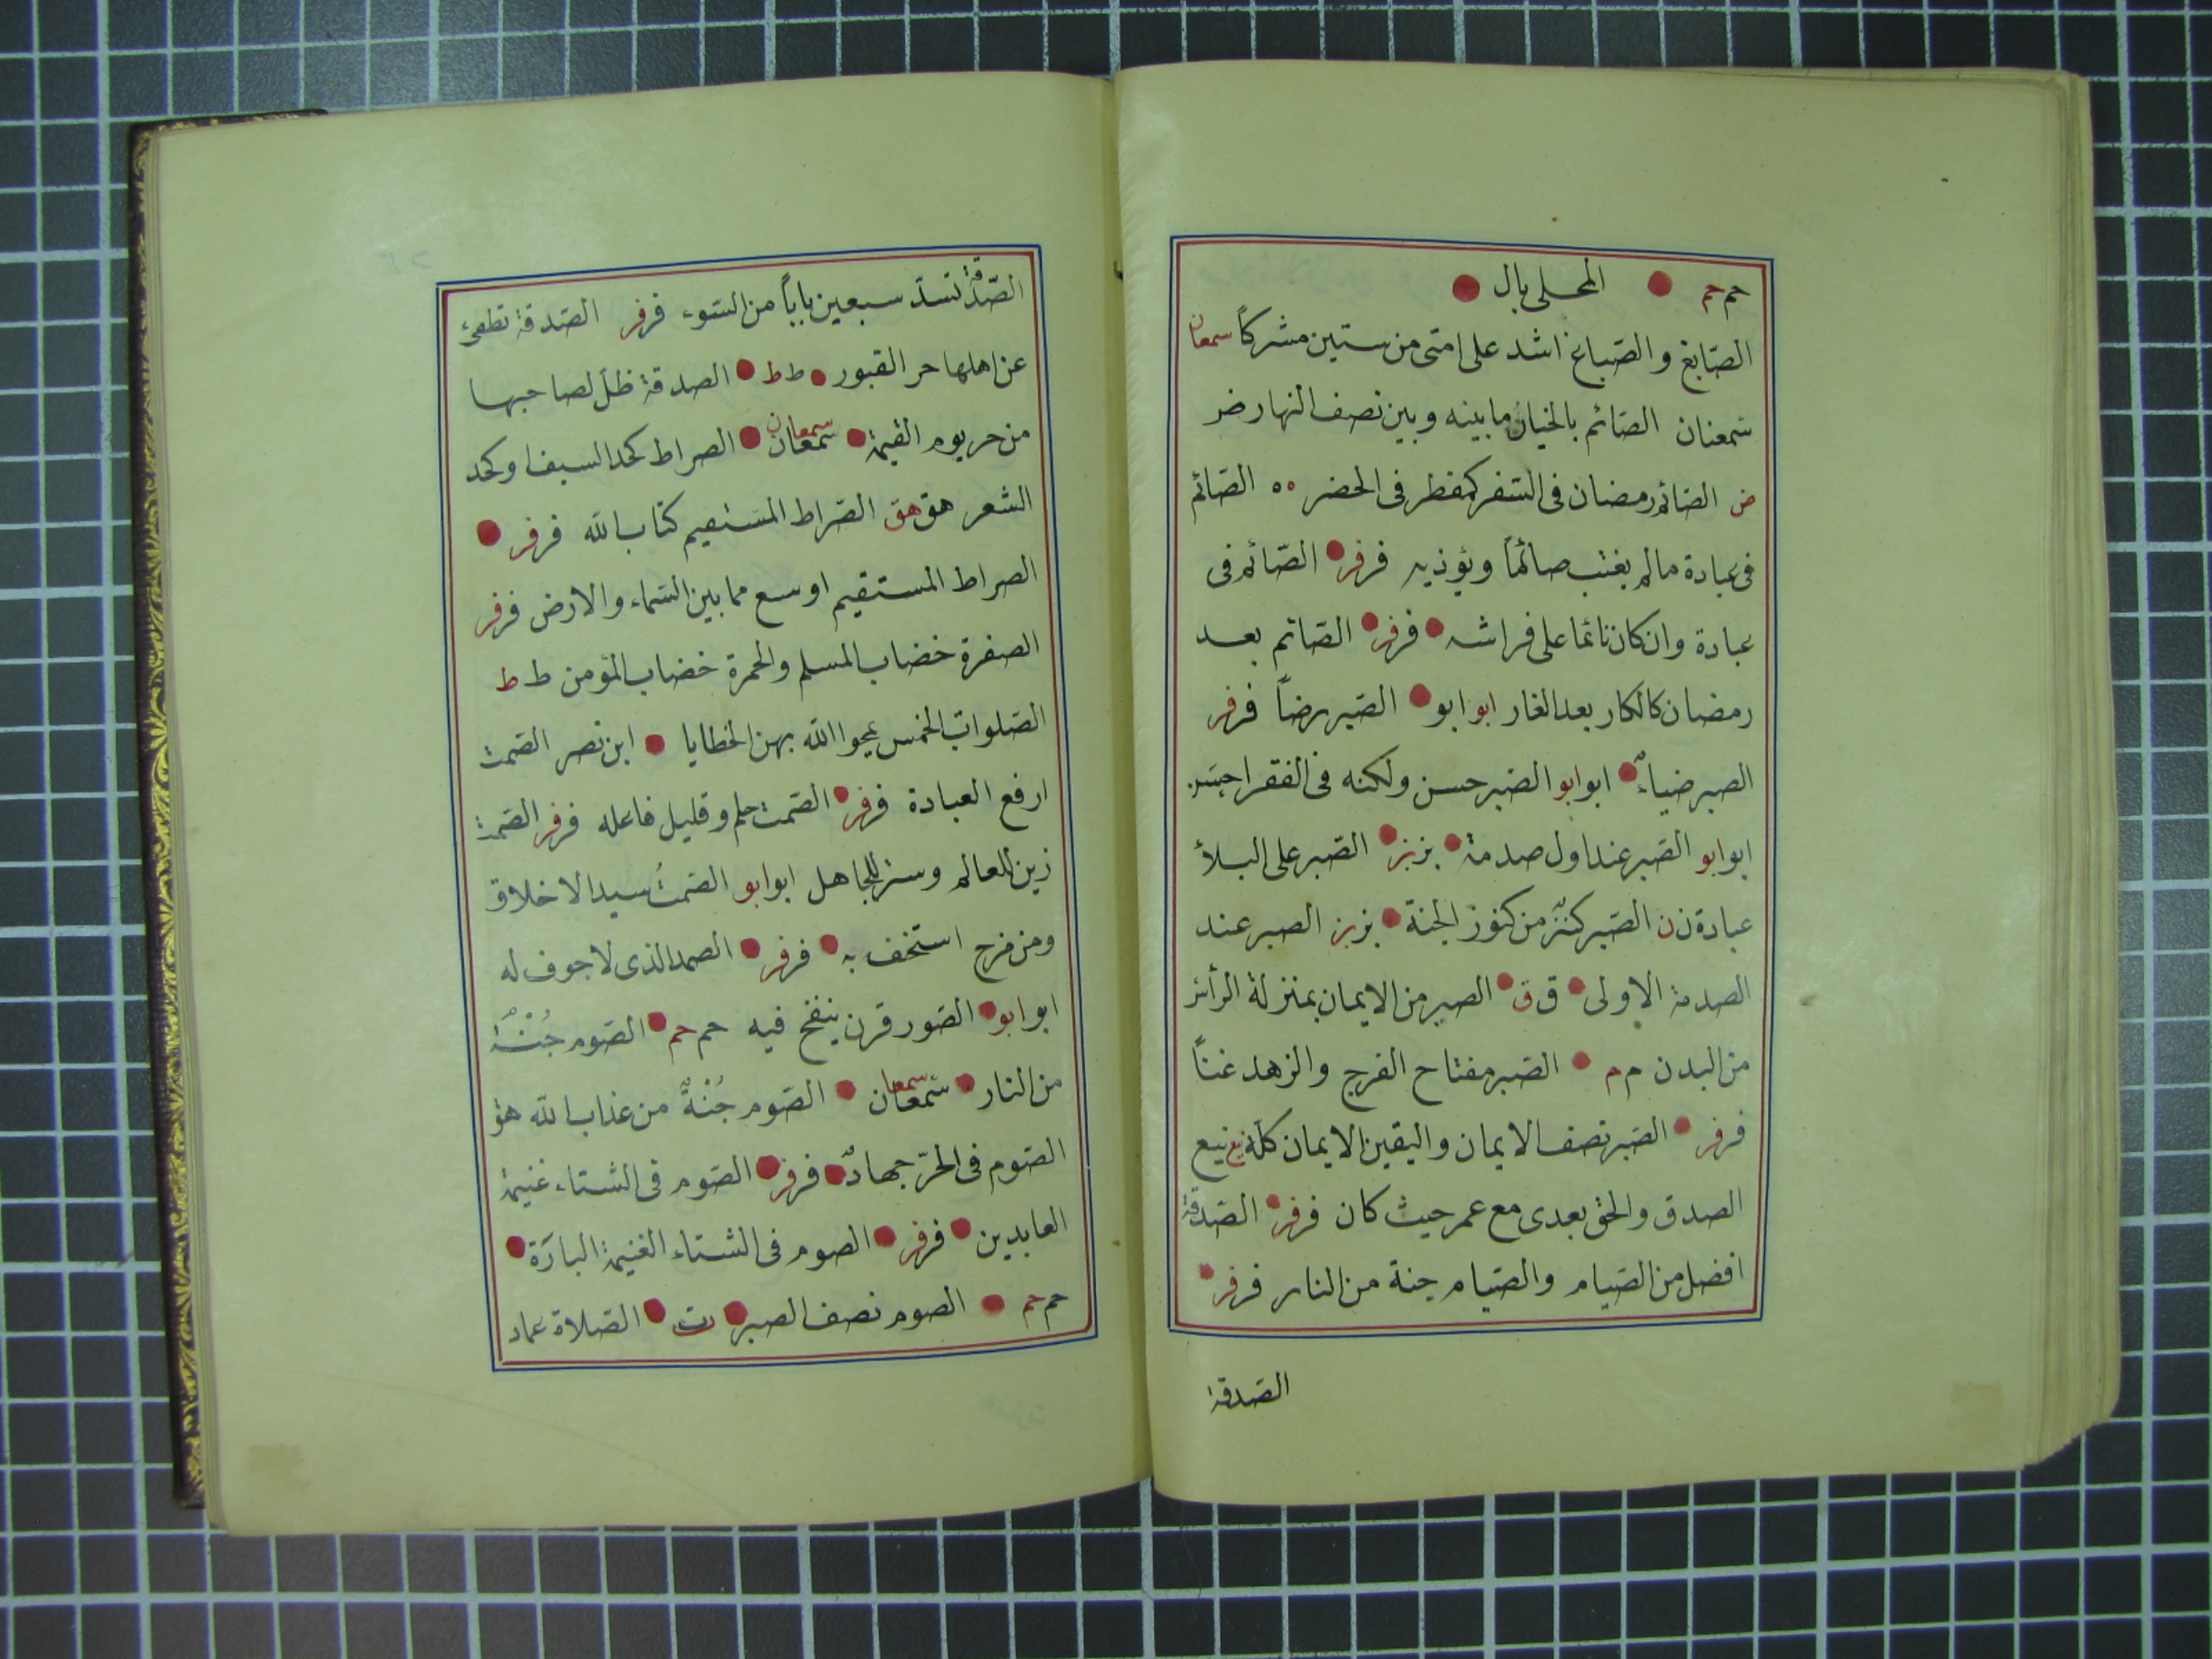 حم حم المحلى بال
الصّابغ والصّباغ اشد على امتى من ستين مشركاً سمعان
سمعنان الصّائم بالخيار ما بينه وبين نصف النهار ض
ض الصّائم رمضان فى السّفر كمفطر فى الحضر ه ه الصّائم
فى عبادة مالم يغتب صائماً ويؤذيه فر فر الصّائم فى
عبادة وان كان نائما على فراشه فر فر الصّائم بعد
رمضان كالكار بعد الغار ابو ابو الصّبر رضاً فر فر
الصبر ضياءٌ ابو ابو الصّبر حسن ولكنه فى الفقر احسن
ابو ابو الصّبر عند اول صدمة بز بز الصّبر على البلأ
عبادة ن ن الصّبر كنزٌ من كنوز الجنة بز بز الصبر عند
الصدمة الاولى ق ق الصبر من الايمان بمنزلة الرأس
من البدن م م الصّبر مفتاح الفرج والزهد غناً
فر فر الصّبر نصف الايمان واليقين الايمان كله نيع نيع
الصدق والحق بعدى مع عمر حيث كان فر فر الصّدقة
افضل من الصّيام والصّيام جنة من النار فر فر
الصّدقة
الصّدقة تسدّ سبعين باباً من السّوء فر فر الصّدقة تطفىء
عن اهلها حر القبور ط ط الصدقة ظل لصاحبها
من حر يوم القيمة سمعان سمعان الصراط كحد السيف او كحد
الشعر هق هق الصّراط المستقيم كتاب الله فر فر
الصراط المستقيم اوسع مما بين السّماء والارض فر فر
الصفرة خضاب المسلم والحمرة خضاب المؤمن ط ط
الصّلوات الخمس يمحوا الله بهن الخطايا ابن نصر الصّمت
ارفع العبادة فر فر الصّمت حلم وقليل فاعله فر فر الصّمت
زين للعالم وستر للجاهل ابو ابو الصّمتُ سيد الاخلاق
ومن مزح استخف به فر فر الصمد الذى لا جوف له
ابو ابو الصّور قرن ينفخ فيه حم حم الصّوم جُنّةٌ
من النار سمعان سمعان الصّوم جُنّةٌ من عذاب الله هق
الصّوم فى الحرّ جهادٌ فر فر الصّوم فى الشتاء غنيمة
العابدين فر فر الصوم فى الشتاء الغنيمة الباردة
حم حم الصوم نصف الصبر ت الصّلاة عماد